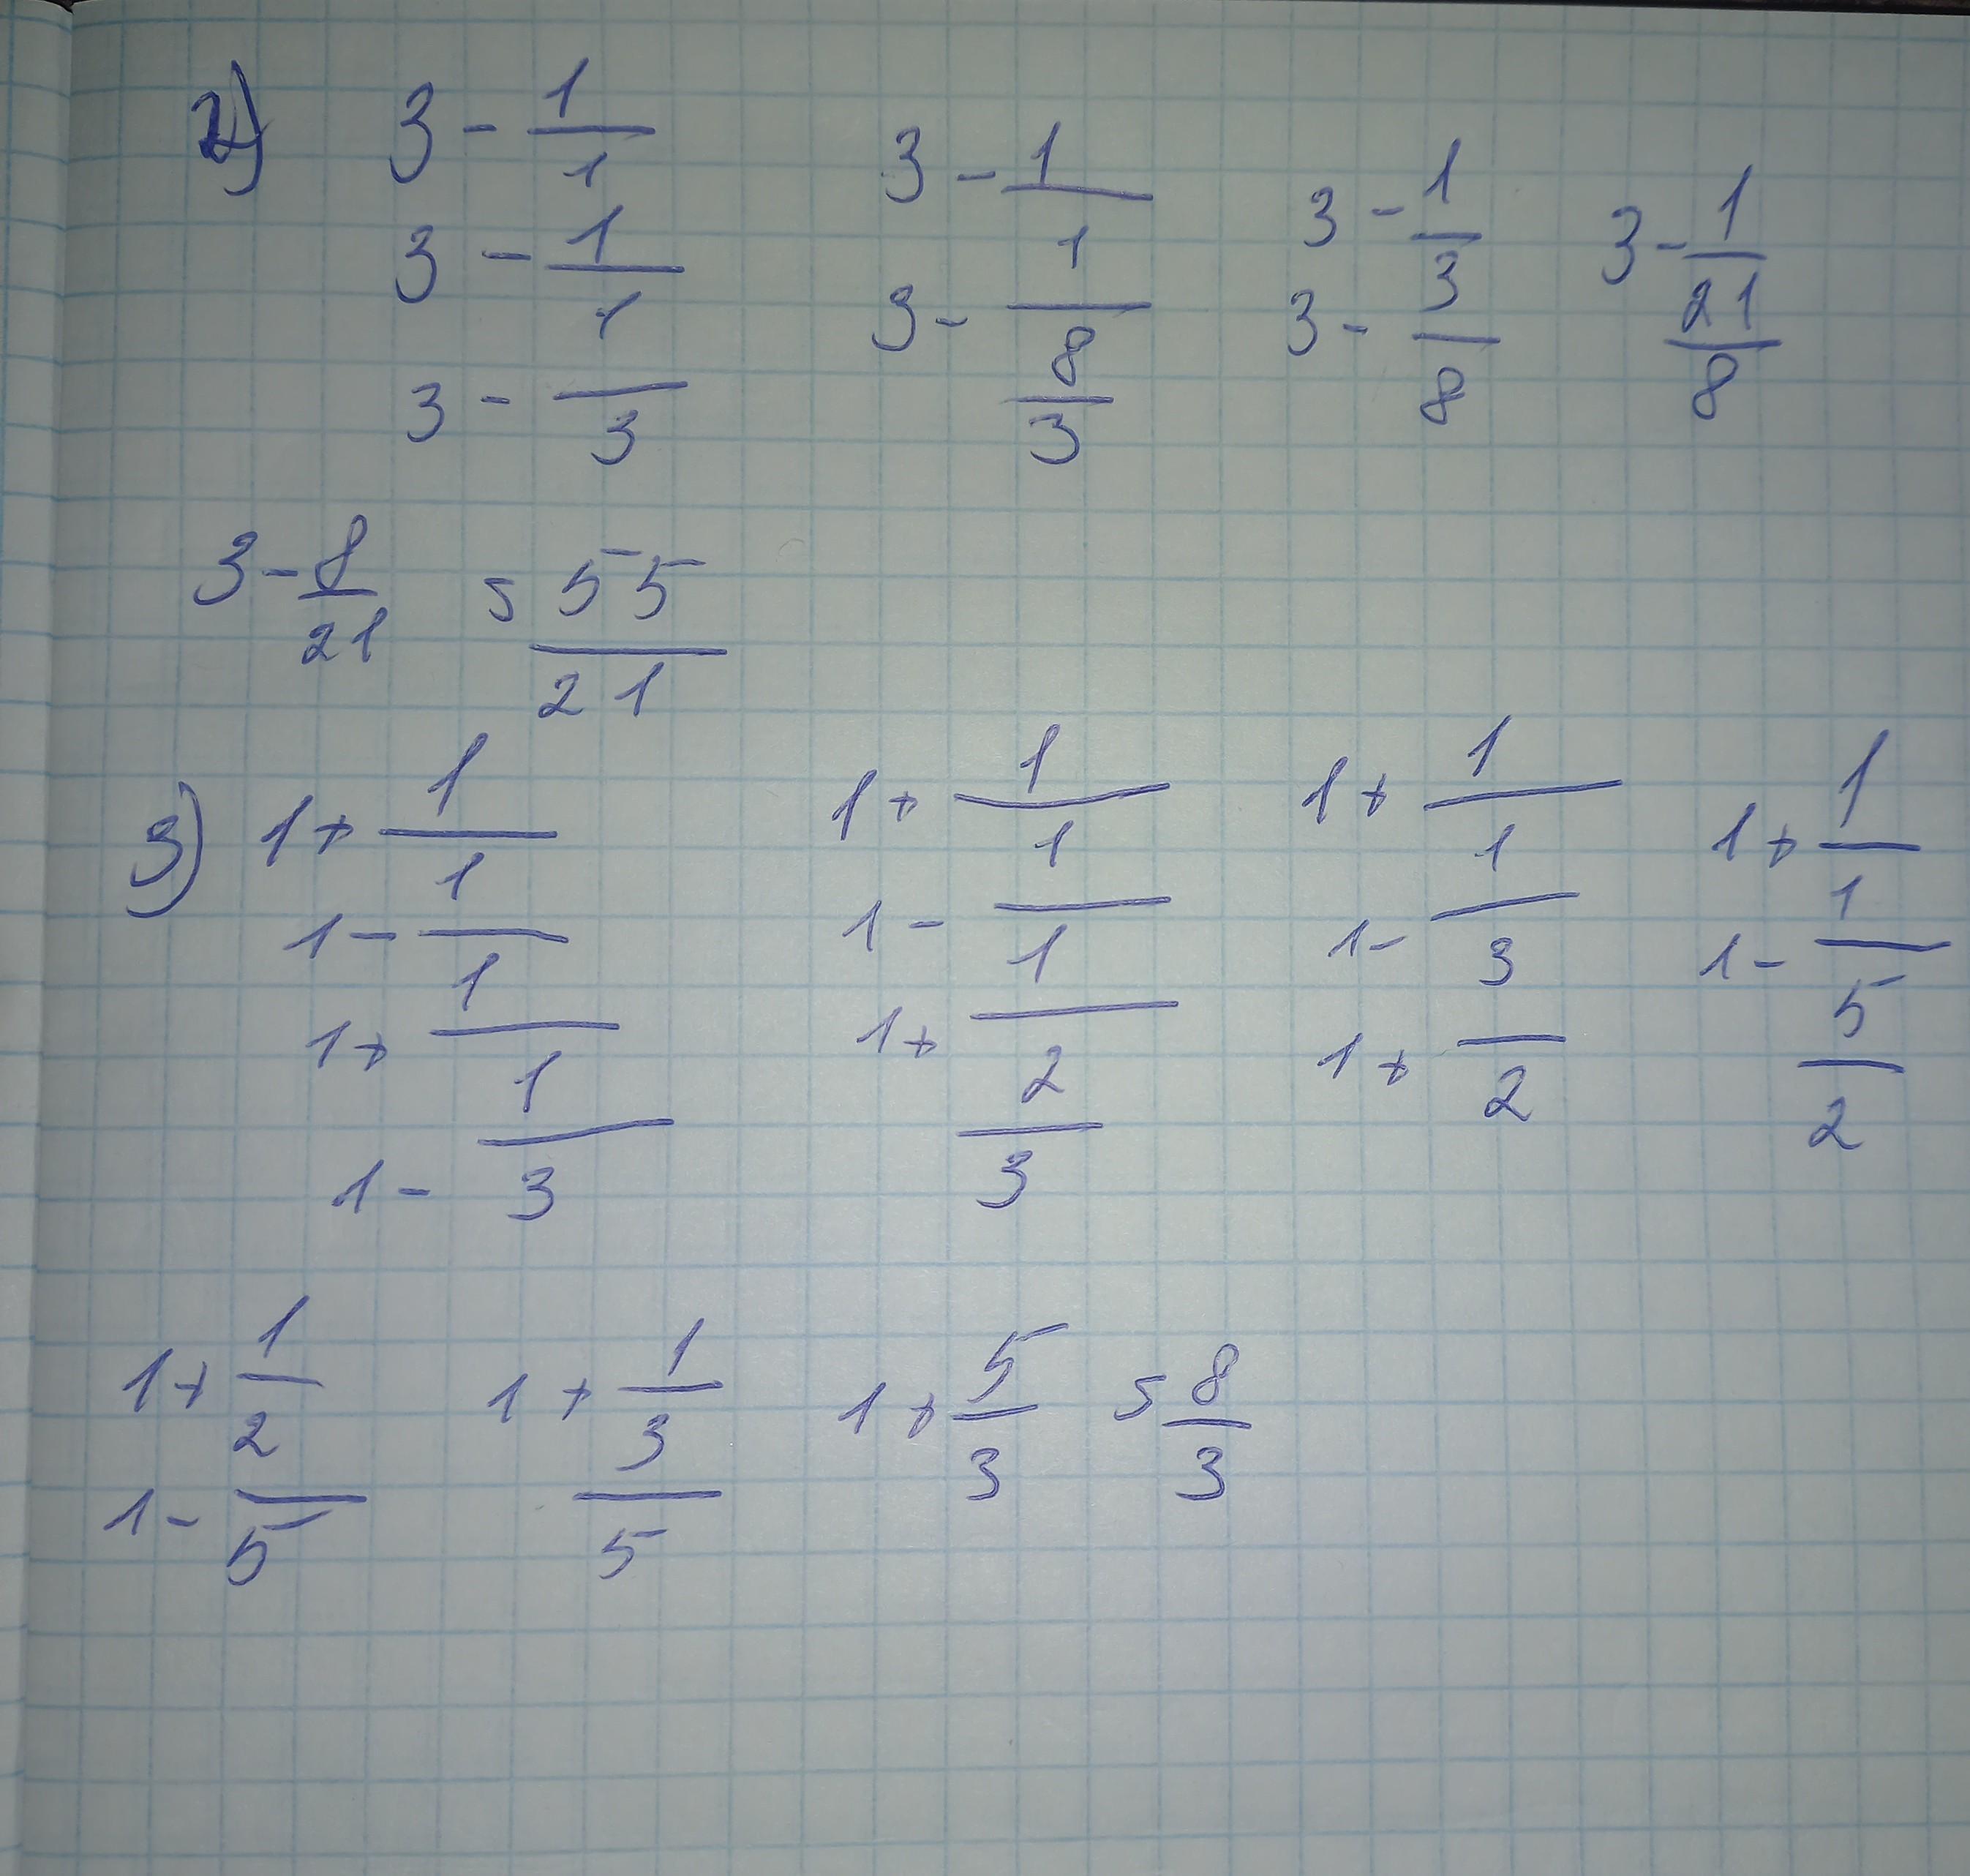 2) 3 - 1/(3 - 1/(3 - 1/3))   3 - 1/(3 - 1/(8/3))   3 - 1/(3 - 3/8)   3 - 1/(21/8)
3 - 8/21 = 55/21
3) 1 + 1/(1 - 1/(1 + 1/(1 - 1/3)))   1 + 1/(1 - 1/(1 + 1/(2/3)))   1 + 1/(1 - 1/(1 + 3/2))   1 + 1/(1 - 1/(5/2))
1 + 1/(1 - 2/5)   1 + 1/(3/5)   1 + 5/3 = 8/3